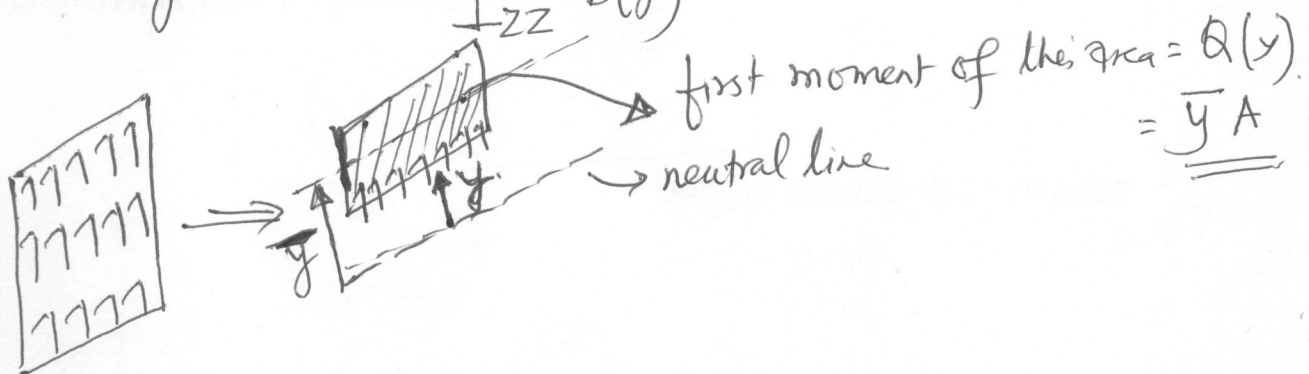 zz
first moment of this area = Q(y).
= y̅ A
neutral line
y.
y̅